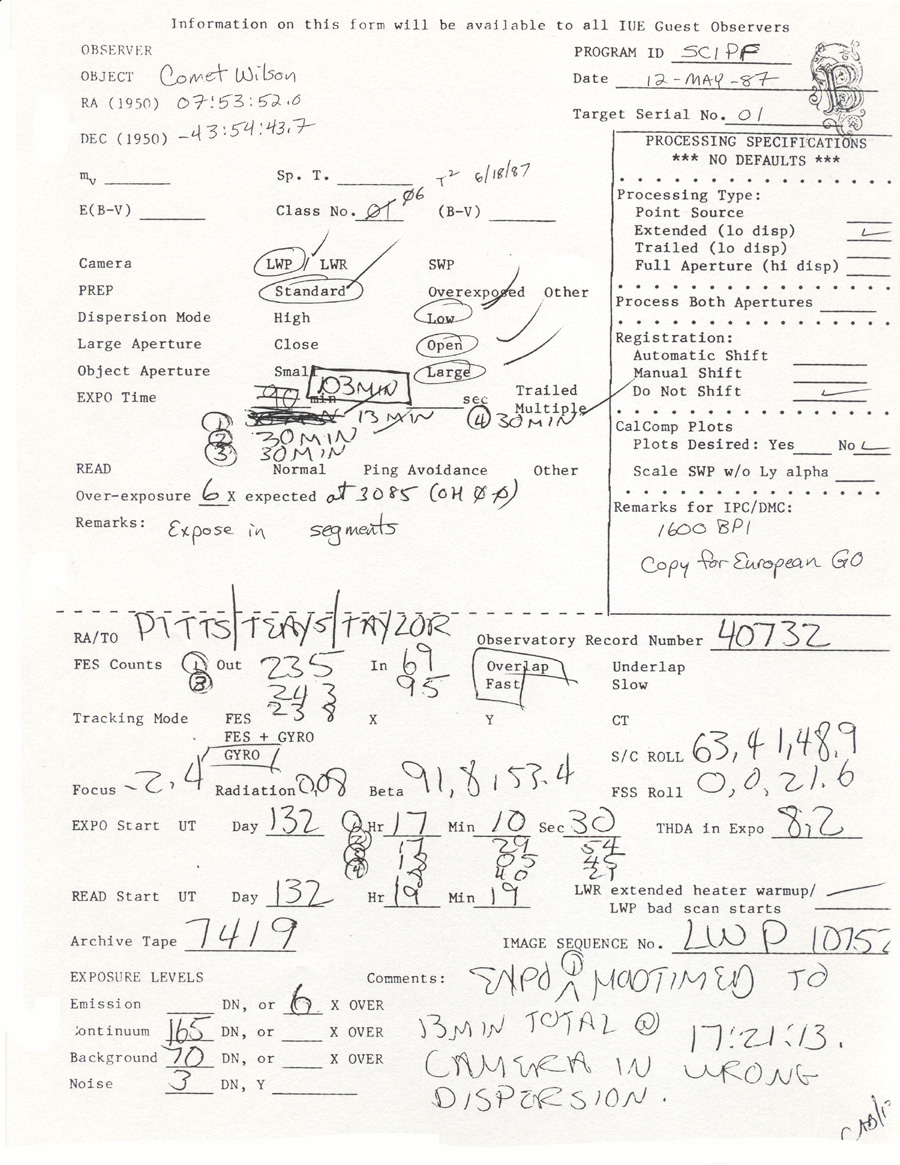 Information on this form will be available to all IUE Guest Observers
OBSERVER
PROGRAM ID SCIPF
OBJECT Comet Wilson
Date 12-MAY-87
RA (1950) 07:53:52.0
Target Serial No. 01
DEC (1950) -43:54:43.7
PROCESSING SPECIFICATIONS
*** NO DEFAULTS ***
mv Sp. T. 6/18/87
E(B-V) Class No. 01 06 (B-V)
Processing Type:
Point Source
Extended (lo disp)
Trailed (lo disp)
Full Aperture (hi disp)
Camera LWP / LWR SWP
PREP Standard Overexposed Other
Process Both Apertures
Dispersion Mode High Low
Large Aperture Close Open
Object Aperture Small Large
Registration:
Automatic Shift
Manual Shift
Do Not Shift
EXPO Time 90 min 103 MIN sec Trailed
Multiple
1 13 MIN 4 30 MIN
2 30 MIN
3 30 MIN
CalComp Plots
Plots Desired: Yes No
Scale SWP w/o Ly alpha
READ Normal Ping Avoidance Other
Over-exposure 6 X expected at 3085 (OH 0-0)
Remarks: Expose in segments
Remarks for IPC/DMC:
1600 BPI
Copy for European GO
RA/TO PITTS/TEAYS/TAYLOR
Observatory Record Number 40732
FES Counts 1 Out 235 In 69 Overlap Underlap
243 95 Fast Slow
238
Tracking Mode FES X Y CT
FES + GYRO
GYRO
S/C ROLL 63,41,48.9
Focus -2.4 Radiation 0.08 Beta 91,8,53.4
FSS Roll 0,0,21.6
EXPO Start UT Day 132 1 Hr 17 Min 10 Sec 30 THDA in Expo 8.2
2 17 29 54
3 18 05 45
4 40
READ Start UT Day 132 Hr 19 Min 19
LWR extended heater warmup/
LWP bad scan starts
Archive Tape 7419
IMAGE SEQUENCE No. LWP 10752
EXPOSURE LEVELS
Comments: EXPO 1 MODTIMED TO
13 MIN TOTAL @ 17:21:13.
CAMERA IN WRONG
DISPERSION.
Emission DN, or 6 X OVER
Continuum 165 DN, or X OVER
Background 70 DN, or X OVER
Noise 3 DN, Y